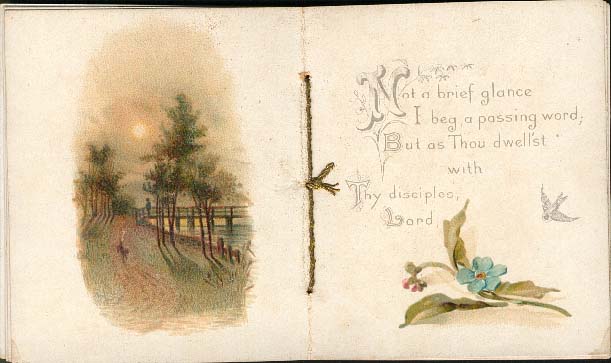 Not a brief glance
I beg a passing word;
But as Thou dwell'st
with
Thy disciples,
Lord,